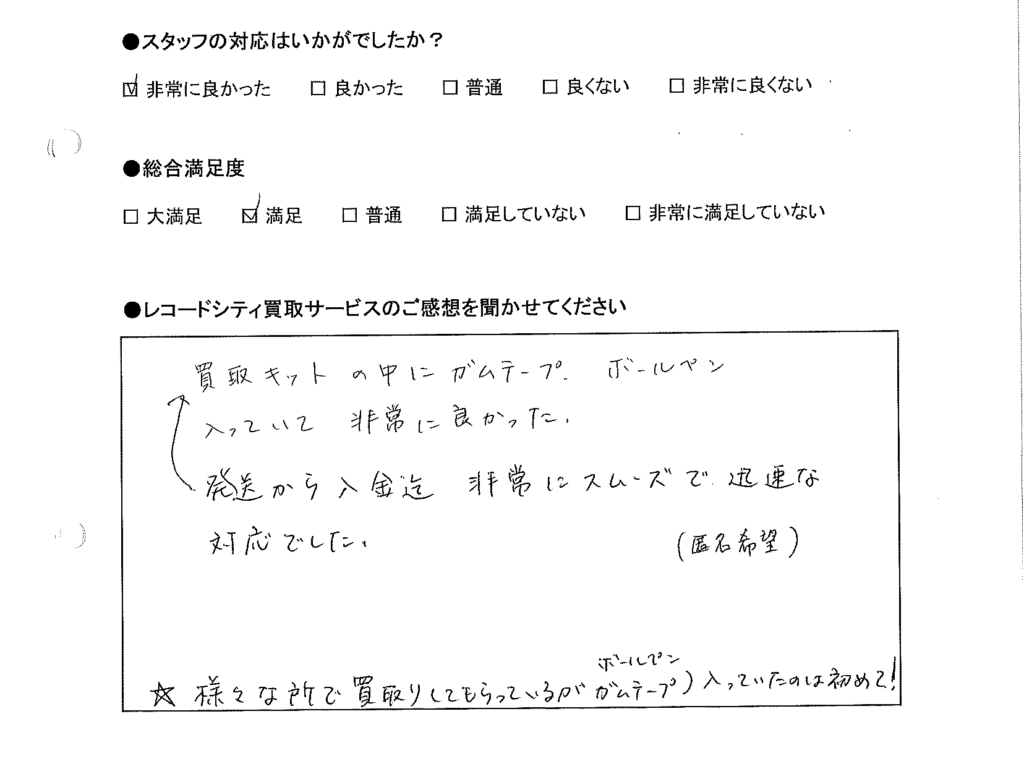 ●スタッフの対応はいかがでしたか？
☑ 非常に良かった □ 良かった □ 普通 □ 良くない □ 非常に良くない
●総合満足度
□ 大満足 ☑ 満足 □ 普通 □ 満足していない □ 非常に満足していない
●レコードシティ買取サービスのご感想を聞かせてください
買取キットの中にガムテープ. ボールペン
入っていて 非常に良かった.
発送から入金迄 非常にスムーズで 迅速な
対応でした.
(匿名希望)
ボールペン
☆ 様々な所で買取りしてもらっているがガムテープ) 入っていたのは初めて!